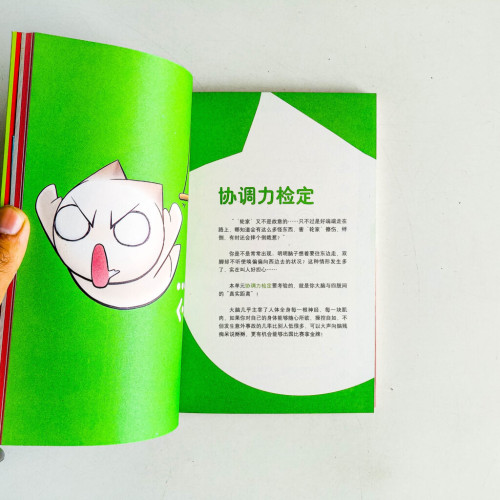 协调力检定
人家又不是故意的……只不过是好端端走在
路上，哪知道会有这么多怪东西，害人家擦伤、碎
倒，有时还会摔个倒栽葱！
你是不是常常出现，明明脑子想着要往东边走，双
脚却不听使唤偏偏向西边去的状况？这种情形发生多
了，实在叫人好担心……
本单元协调力检定要考验的，就是你大脑与四肢间
的“真实距离”！
大脑几乎主宰了人体全身每一根神经、每一块肌
肉，如果你对自己的身体能够随心所欲、操控自如，不
但发生意外事故的几率比别人低很多，可以大声向脑残
糗呆说掰掰，更有机会能够出国比赛拿金牌！